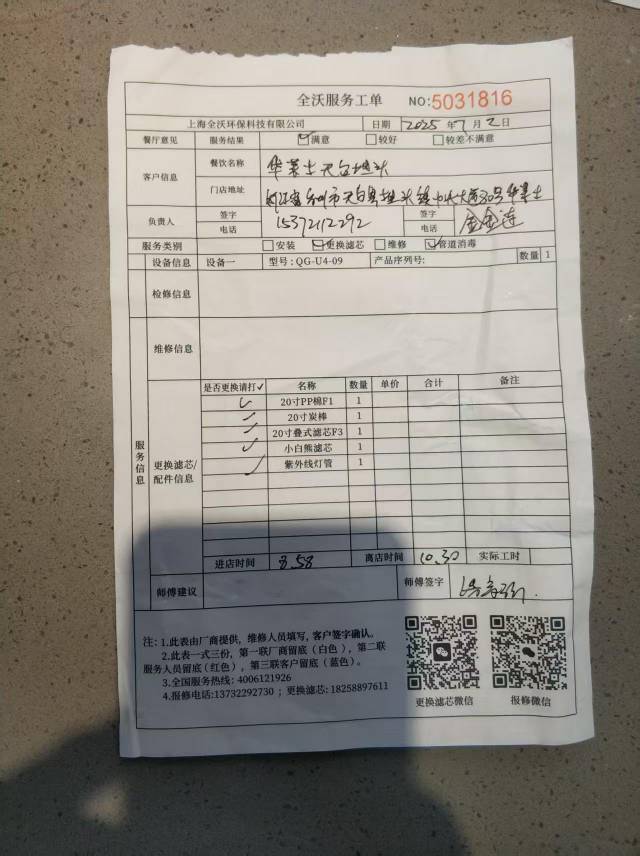 全沃服务工单 NO:5031816
上海全沃环保科技有限公司 日期 2025年7月2日
餐厅意见 服务结果 ☑满意 □较好 □较差不满意
客户信息 餐饮名称 华莱士天台坦头
门店地址 浙江省台州市天台县坦头镇 华莱士
负责人 签字 签字
电话 15372112292 电话 金金莲
服务类别 □安装 ☑更换滤芯 □维修 ☑管道消毒
设备信息 设备一 型号:QG-U4-09 产品序列号: 数量 1
检修信息
维修信息
服务信息
更换滤芯/配件信息
是否更换请打✓ 名称 数量 单价 合计 备注
✓ 20寸PP棉F1 1
✓ 20寸炭棒 1
✓ 20寸叠式滤芯F3 1
✓ 小白熊滤芯 1
✓ 紫外线灯管 1
进店时间 8.58 离店时间 10.30 实际工时
师傅建议 师傅签字
注: 1.此表由厂商提供，维修人员填写，客户签字确认。
2.此表一式三份，第一联厂商留底（白色），第二联
服务人员留底(红色)，第三联客户留底（蓝色）。
3.全国服务热线: 4006121926
4.报修电话:13732292730 ; 更换滤芯: 18258897611
更换滤芯微信 报修微信